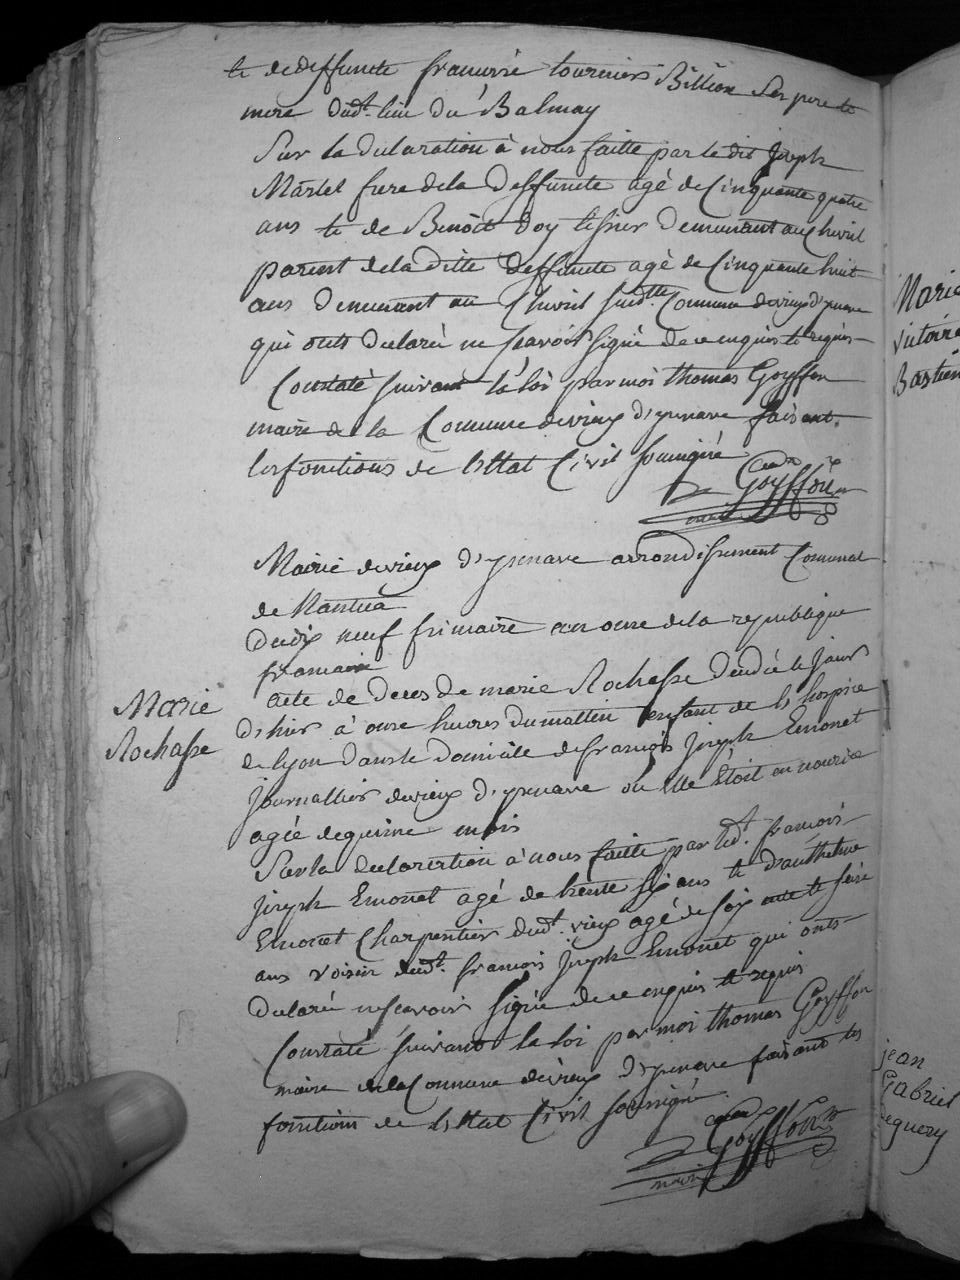 et de deffuncte francoise tourniers Billion ses pere et
mere dudt. lieu du Balmay
Sur la declaration à nous faitte par le dit joseph
Martel frere dela deffuncte agé de Cinquante quatre
ans et de Benoit Joy demeurant au Chivril
parent de la ditte deffuncte agé de Cinquante huit
ans demeurant au Chivril sudtte. Commune devieux d'yzenave
qui onts declaré ne scavoir signé de ce enquis et requis
Constaté suivant la loi par moi thomas Goyffon
maire de la Commune devieux d'yzenave faisant
les fonctions de L'Etat Civil soussigné
Goyffon
maire
Mairie devieux d'yzenave arrondissement Comunal
de Nantua
Dudix neuf frimaire an onze de la republique
francaise
Marie
Rochasse
acte de deces de marie Rochasse decedée le jour
d'hier à onze heures du mattin enfant de L'hospice
de lyon dans le domicile de francois joseph Emonet
journallier devieux d'yzenave ou elle étoit en nourice
agée de quinze mois
Sur la declaration à nous faitte par ledt. francois
joseph Emonet agé de trente six ans et d'anthelme
Emonet Charpentier dudt. vieux agé de soixante et seize
ans voisin dudt. francois joseph Emonet qui onts
declaré ne scavoir signé de ce enquis et requis
Constaté suivant la loi par moi thomas Goyffon
maire de la Commune devieux d'yzenave faisant les
fonctions de L'Etat Civil soussigné
Goyffon
maire
Marie
victoire
Bastien
jean
Gabriel